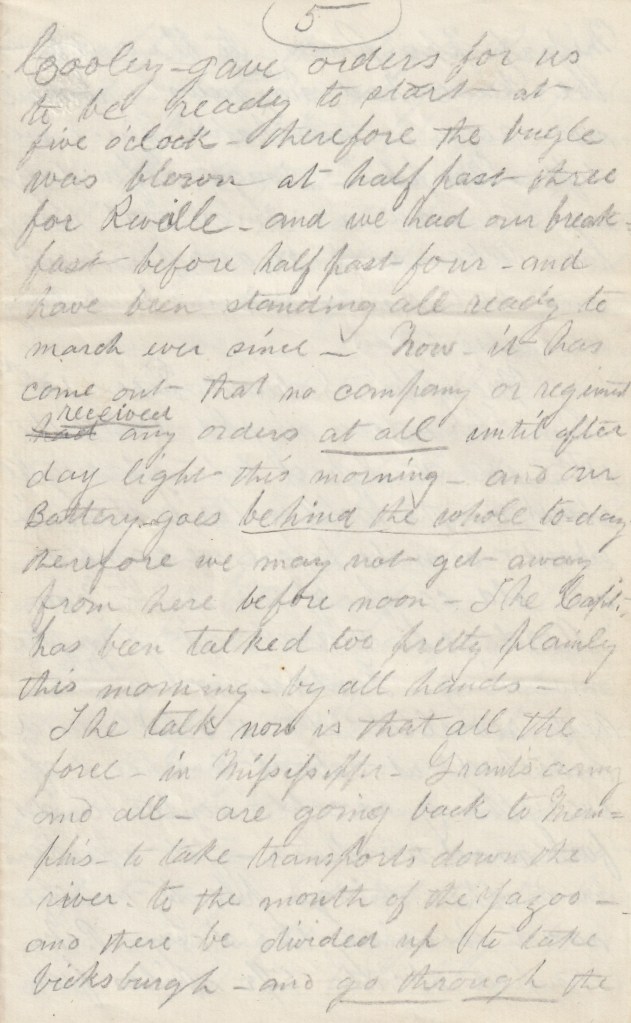 5
Cooley - gave orders for us
to be ready to start at
five o'clock - therefore the bugle
was blown at half past three
for Reville - and we had our break-
fast before half past four - and
have been standing all ready to
march ever since - Now - it has
come out that no company or regiment
had received any orders at all until after
day light this morning - and our
Battery goes behind the whole to-day
therefore we may not get away
from here before noon - The Capt.
has been talked too pretty plainly
this morning - by all hands -
The talk now is that all the
force - in Mississippi - Grants army
and all - are going back to Mem=
phis - to take transports down the
river - to the mouth of the Yazoo -
and there be divided up to take
Vicksburgh - and go through the